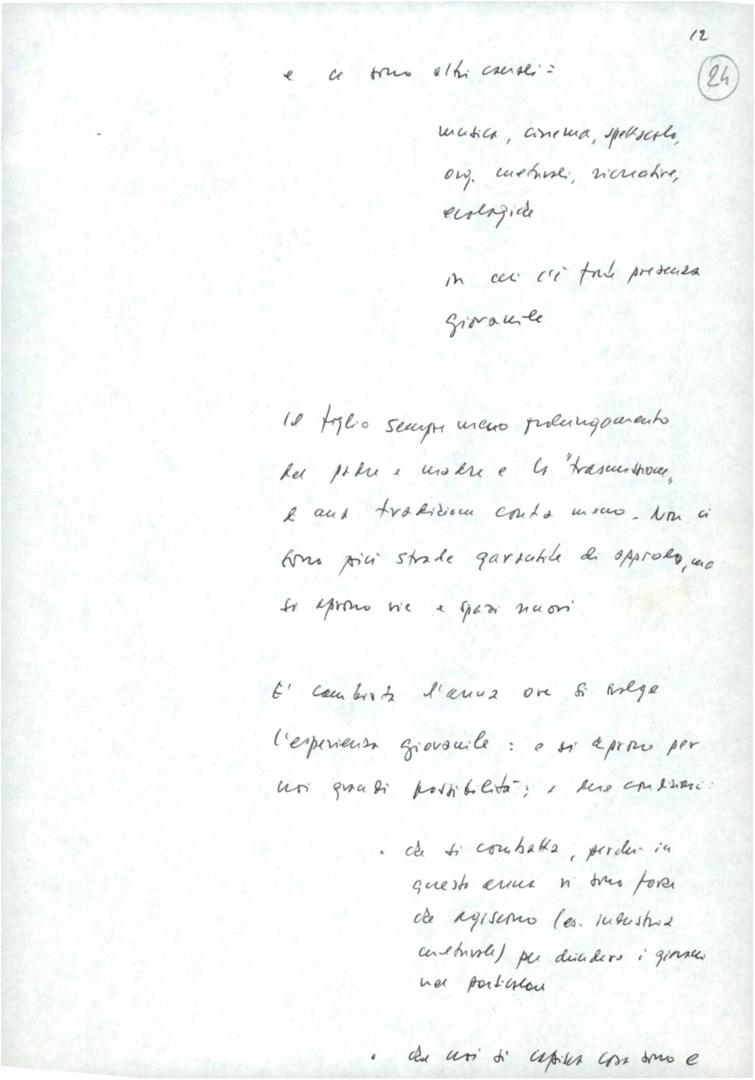 12
24
e ci sono altri canali:
musica, cinema, spettacolo,
org. culturali, ricreative,
ecologiche
in cui c'è forte presenza
giovanile
Il figlio sempre meno prolungamento
del padre e madre e la "trasmissione"
di una tradizione conta meno. Non ci
sono più strade garantite di approdo, ma
si aprono vie e spazi nuovi
E' cambiata l'arena ove si svolge
l'esperienza giovanile: e si aprono per
noi grandi possibilità; a due condizioni:
. che si combatta, perché in
questa arena vi sono forze
che agiscono (es. industria
culturale) per chiudere i giovani
nel particolare
. che noi si capisca cosa sono e